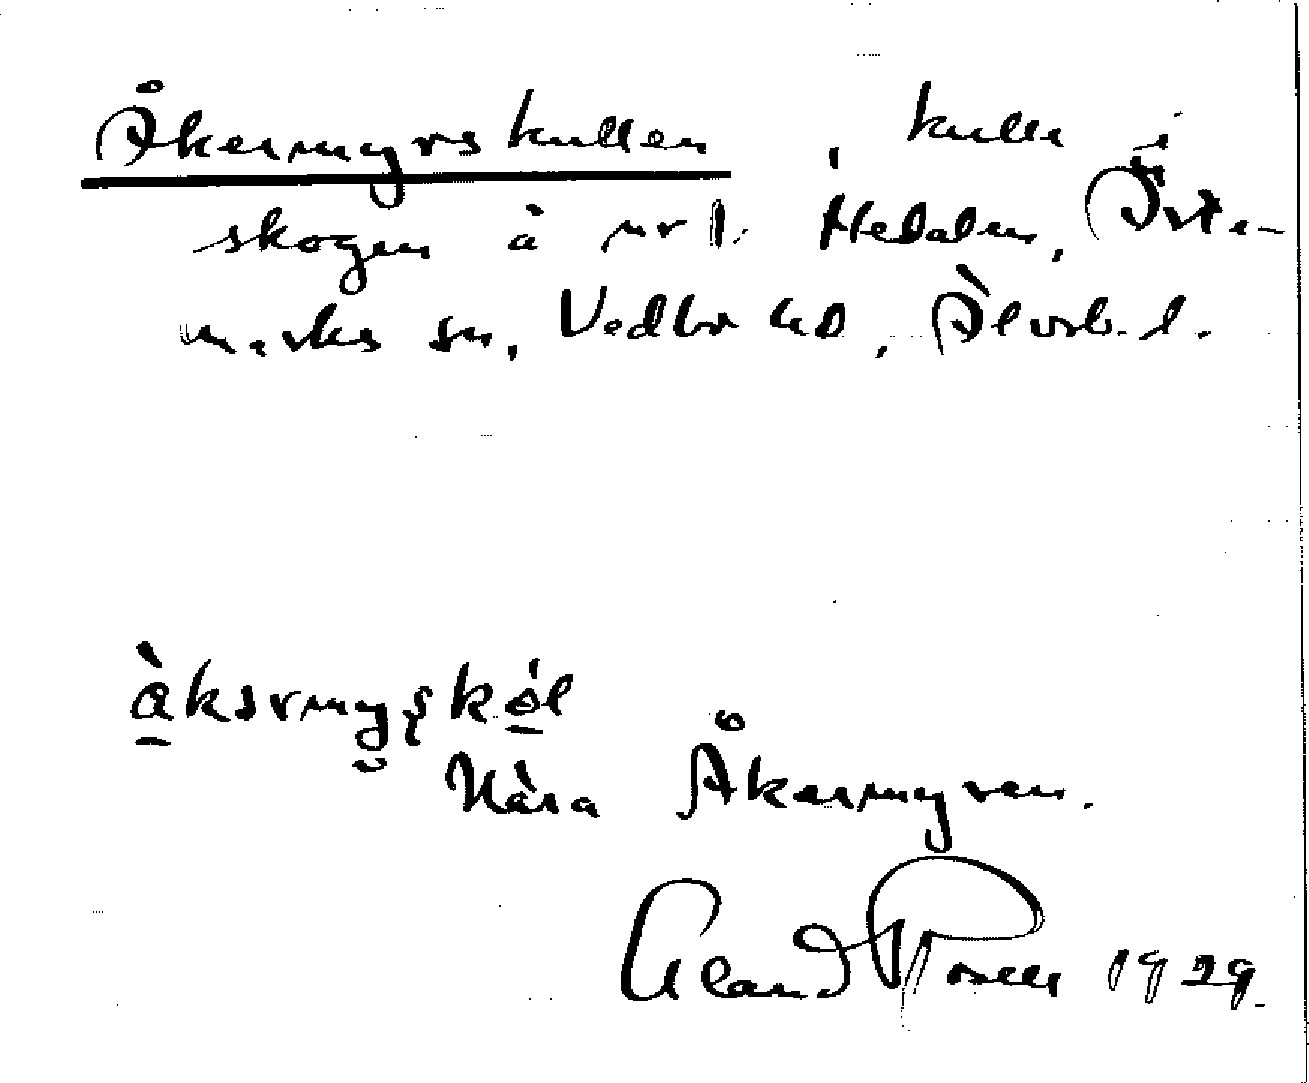 Åkermyrskullen, kulle i
skogen å nr 1. Hedalen, Ärte-
marks sn, Vedbo hd, Älvsb. l.
Nära Åkermyren.
Erland Rosell 1929.